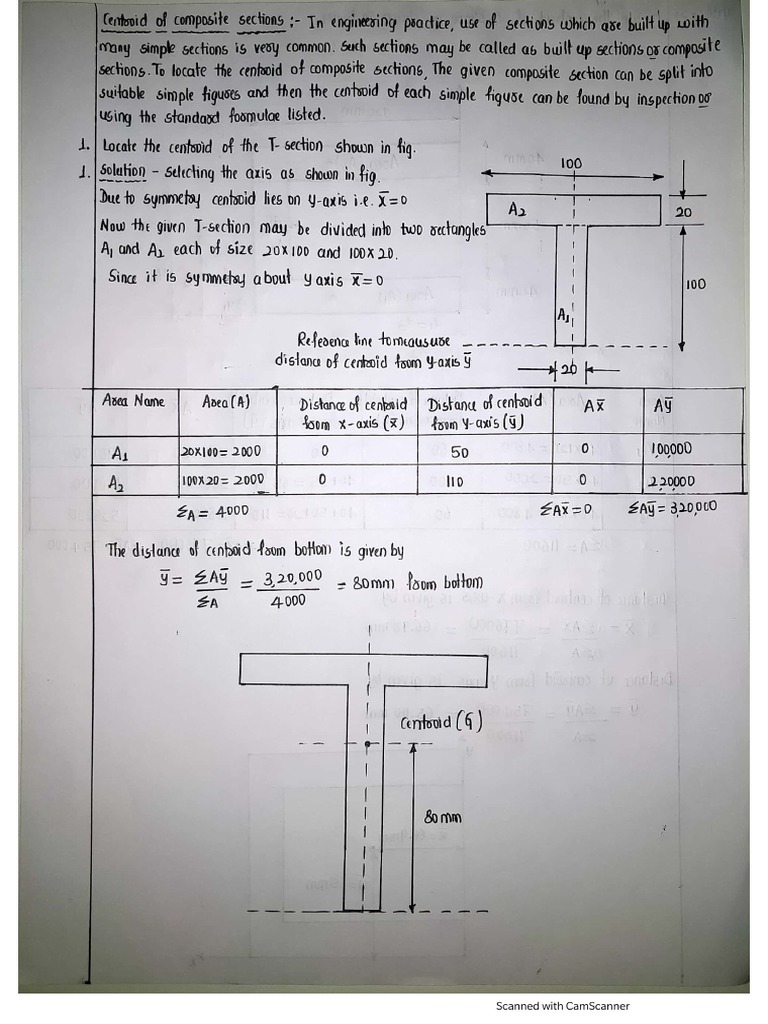 Centroid of composite sections :- In engineering practice, use of sections which are built up with
many simple sections is very common. Such sections may be called as built up sections or composite
sections. To locate the centroid of composite sections, The given composite section can be split into
suitable simple figures and then the centroid of each simple figure can be found by inspection or
using the standard formulae listed.
1. Locate the centroid of the T-section shown in fig.
1. Solution - selecting the axis as shown in fig.
Due to symmetry centroid lies on y-axis i.e. x̄=0
Now the given T-section may be divided into two rectangles
A1 and A2 each of size 20x100 and 100x20.
Since it is symmetry about y axis x̄=0
100
A2
20
100
A1
Reference line to meausure
distance of centroid from y-axis ȳ
20
Area Name Area(A) Distance of centroid from x-axis (x̄) Distance of centroid from y-axis (ȳ) Ax̄ Aȳ
A1 20x100= 2000 0 50 0 1,00,000
A2 100x20= 2000 0 110 0 2,20,000
ΣA = 4000 ΣAx̄=0 ΣAȳ = 3,20,000
The distance of centroid from bottom is given by
ȳ = ΣAȳ/ΣA = 3,20,000/4000 = 80mm from bottom
Centroid (G)
80mm
Scanned with CamScanner